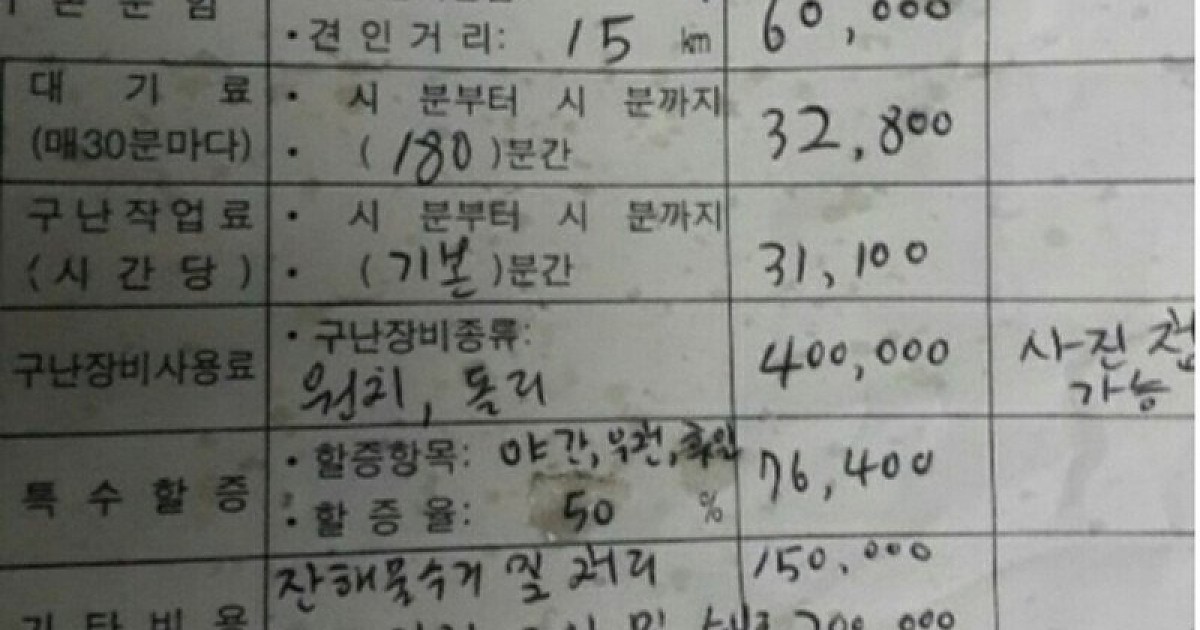 • 견인거리: 15 km 60,000
대 기 료 • 시 분부터 시 분까지 32,800
(매30분마다) • (180)분간
구난작업료 • 시 분부터 시 분까지 31,100
(시간당) • (기본)분간
구난장비사용료 • 구난장비종류: 400,000 사진 첨
윈치, 돌리 가능
특수할증 • 할증항목: 야간, 우천, 휴일 76,400
• 할증율: 50 %
잔해물수거 및 처리 150,000
기타비용 및 200,000